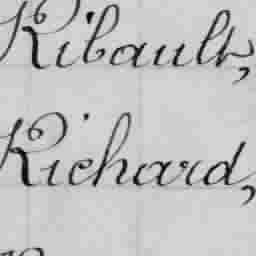 Ribault,
Richard,